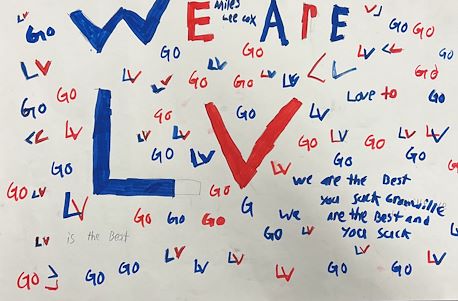 WE ARE
Miles
Lee cox
LV
Go
Go
Go
Go
LV
LV
Go
LV
Go
Go
LV
LV
Go
Go
Go
Love to
Go
Go
LV
Go
LV
LV
LV
Go
LV
Go
LV
LV
LV
Go
Go
LV
LV
Go
Go
Go
LV
Go
G
LV
Go
Go
Go
We are the Best
you suck Granville
We are the Best and
you suck
LV is the Best
LV
Go
LV
LV
Go
Go
Go
LV
LV
LV
Go
Go
LV